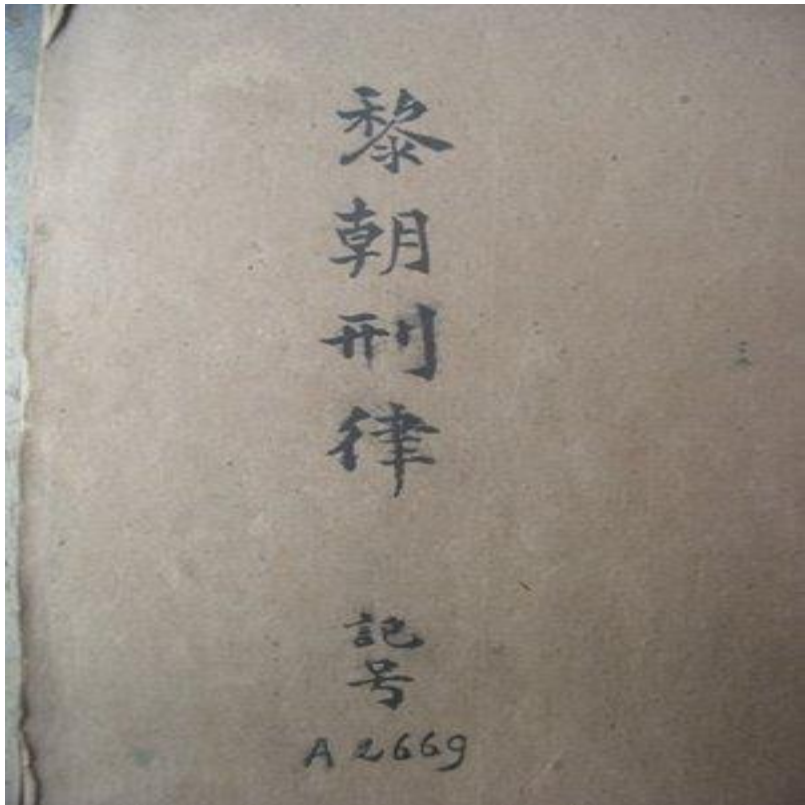 黎朝刑律
記号
A 2669